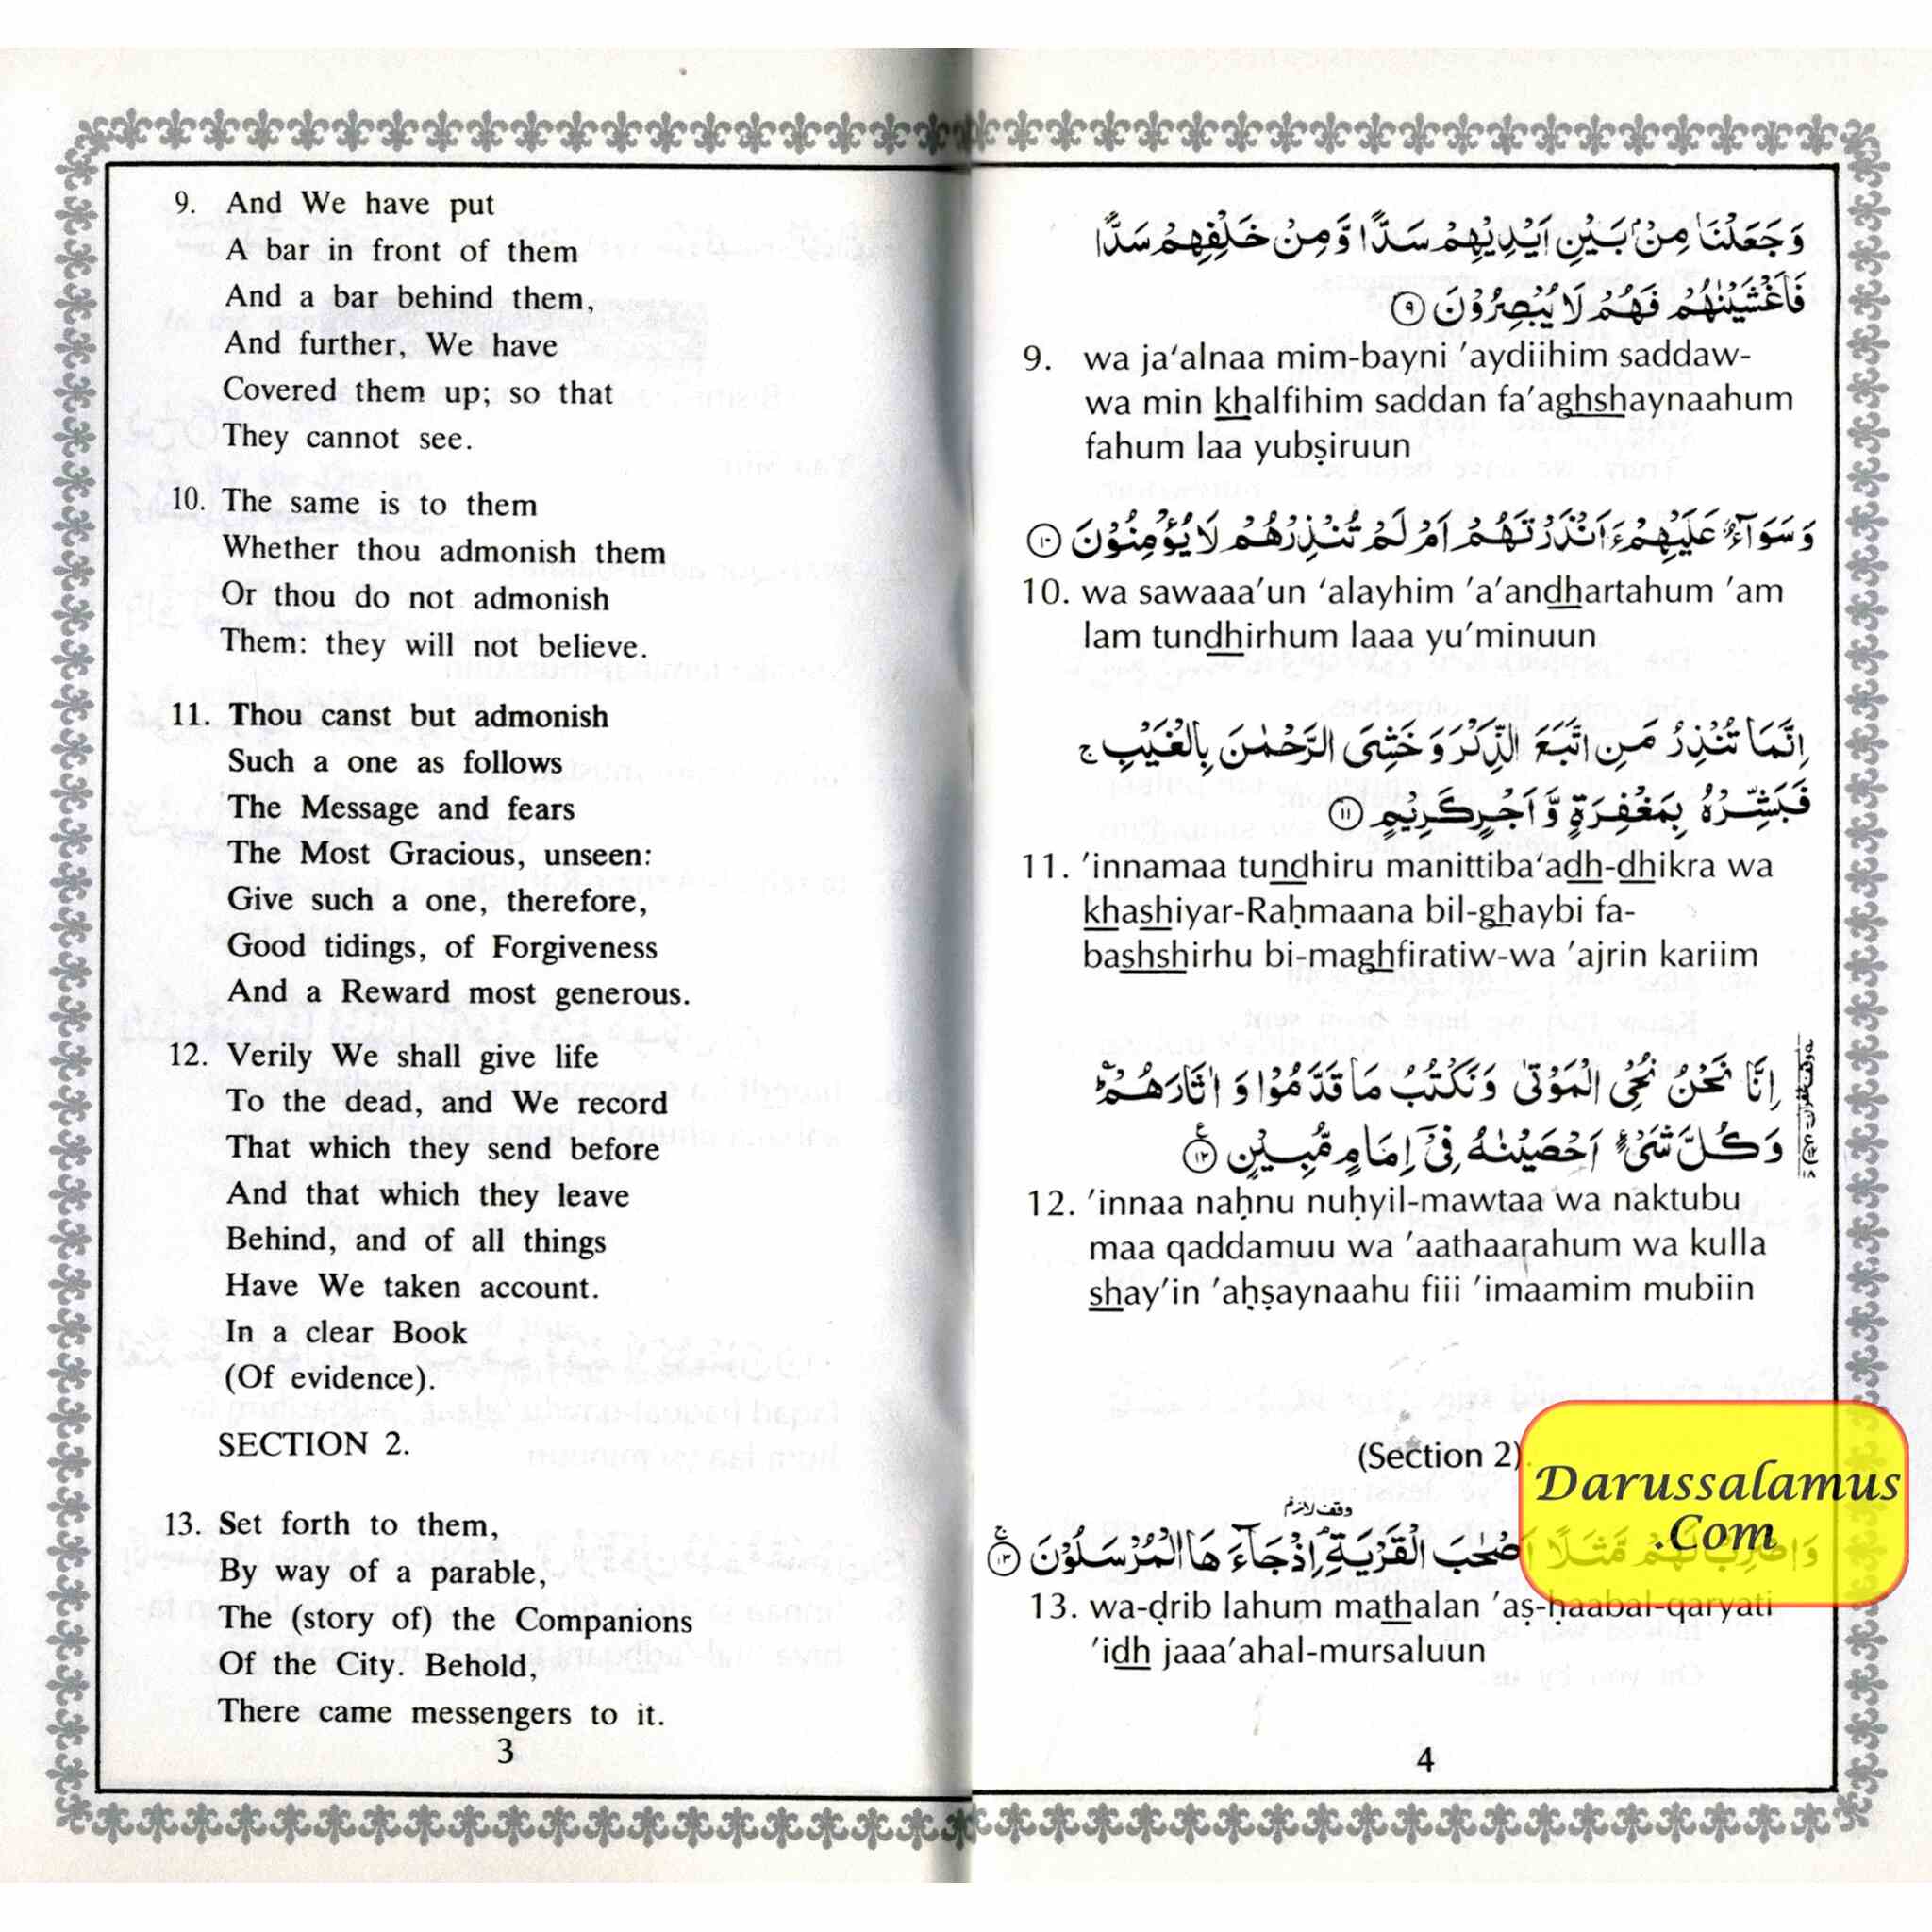 9. And We have put
A bar in front of them
And a bar behind them,
And further, We have
Covered them up; so that
They cannot see.
10. The same is to them
Whether thou admonish them
Or thou do not admonish
Them: they will not believe.
11. Thou canst but admonish
Such a one as follows
The Message and fears
The Most Gracious, unseen:
Give such a one, therefore,
Good tidings, of Forgiveness
And a Reward most generous.
12. Verily We shall give life
To the dead, and We record
That which they send before
And that which they leave
Behind, and of all things
Have We taken account.
In a clear Book
(Of evidence).
SECTION 2.
13. Set forth to them,
By way of a parable,
The (story of) the Companions
Of the City. Behold,
There came messengers to it.
3
وَجَعَلْنَا مِنْۢ بَيْنِ اَيْدِيْهِمْ سَدًّا وَّمِنْ خَلْفِهِمْ سَدًّا
فَاَغْشَيْنٰهُمْ فَهُمْ لَا يُبْصِرُوْنَ ۹
9. wa ja‘alnaa mim-bayni ’aydiihim saddaw-
wa min khalfihim saddan fa’aghshaynaahum
fahum laa yubṣiruun
وَسَوَآءٌ عَلَيْهِمْ ءَاَنْذَرْتَهُمْ اَمْ لَمْ تُنْذِرْهُمْ لَا يُؤْمِنُوْنَ ۱۰
10. wa sawaaa’un ‘alayhim ’a’andhartahum ’am
lam tundhirhum laaa yu’minuun
اِنَّمَا تُنْذِرُ مَنِ اتَّبَعَ الذِّكْرَ وَخَشِىَ الرَّحْمٰنَ بِالْغَيْبِ ج
فَبَشِّرْهُ بِمَغْفِرَةٍ وَّاَجْرٍ كَرِيْمٍ ۱۱
11. ’innamaa tundhiru manittiba‘adh-dhikra wa
khashiyar-Raḥmaana bil-ghaybi fa-
bashshirhu bi-maghfiratiw-wa ’ajrin kariim
اِنَّا نَحْنُ نُحْىِ الْمَوْتٰى وَنَكْتُبُ مَا قَدَّمُوْا وَاٰثَارَهُمْ ط
وَكُلَّ شَىْءٍ اَحْصَيْنٰهُ فِىْٓ اِمَامٍ مُّبِيْنٍ ۱۲
12. ’innaa naḥnu nuḥyil-mawtaa wa naktubu
maa qaddamuu wa ’aathaarahum wa kulla
shay’in ’aḥṣaynaahu fiii ’imaamim mubiin
(Section 2).
وقف لازم
وَاضْرِبْ لَهُمْ مَّثَلًا اَصْحٰبَ الْقَرْيَةِ م اِذْ جَآءَهَا الْمُرْسَلُوْنَ ۱۳
13. wa-ḍrib lahum mathalan ’aṣ-ḥaabal-qaryati
’idh jaaa’ahal-mursaluun
4
Darussalamus
.Com